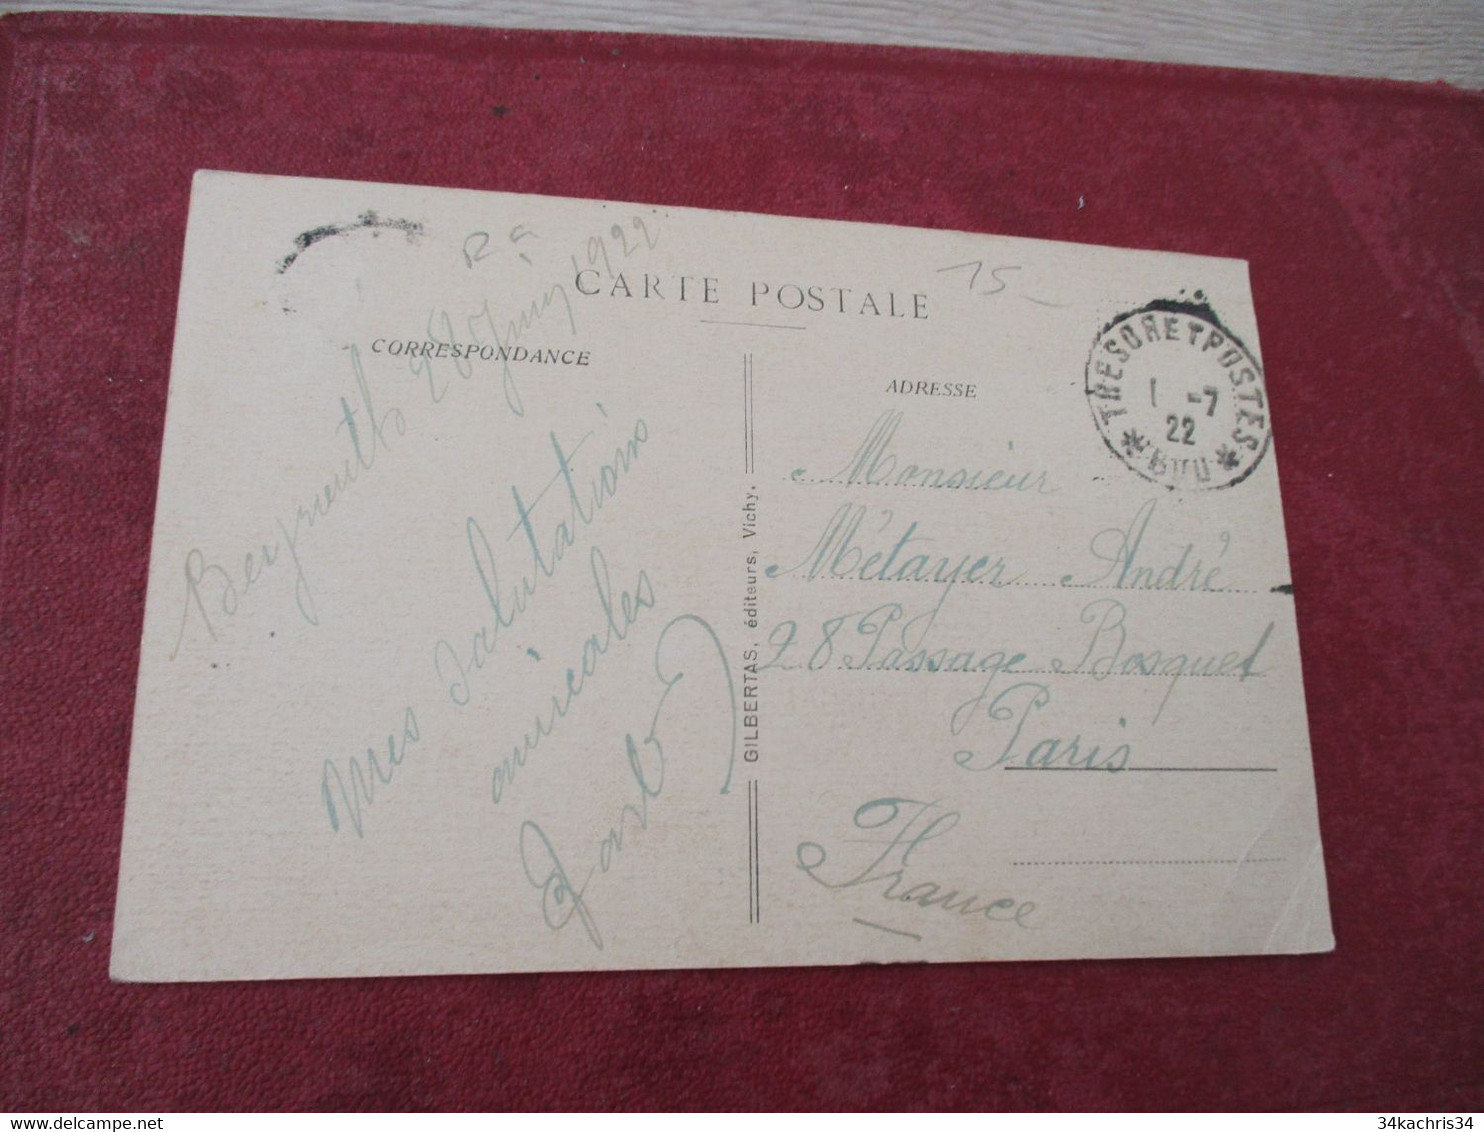 Rª
15
CARTE POSTALE
CORRESPONDANCE
ADRESSE
TRESOR ET POSTES
1 -7
22
Beyrouth 28 Juin 1922
Mes salutations
amicales
GILBERTAS, éditeurs, Vichy.
Monsieur
Métayer André
28 Passage Bosquet
Paris
France
34kachris34